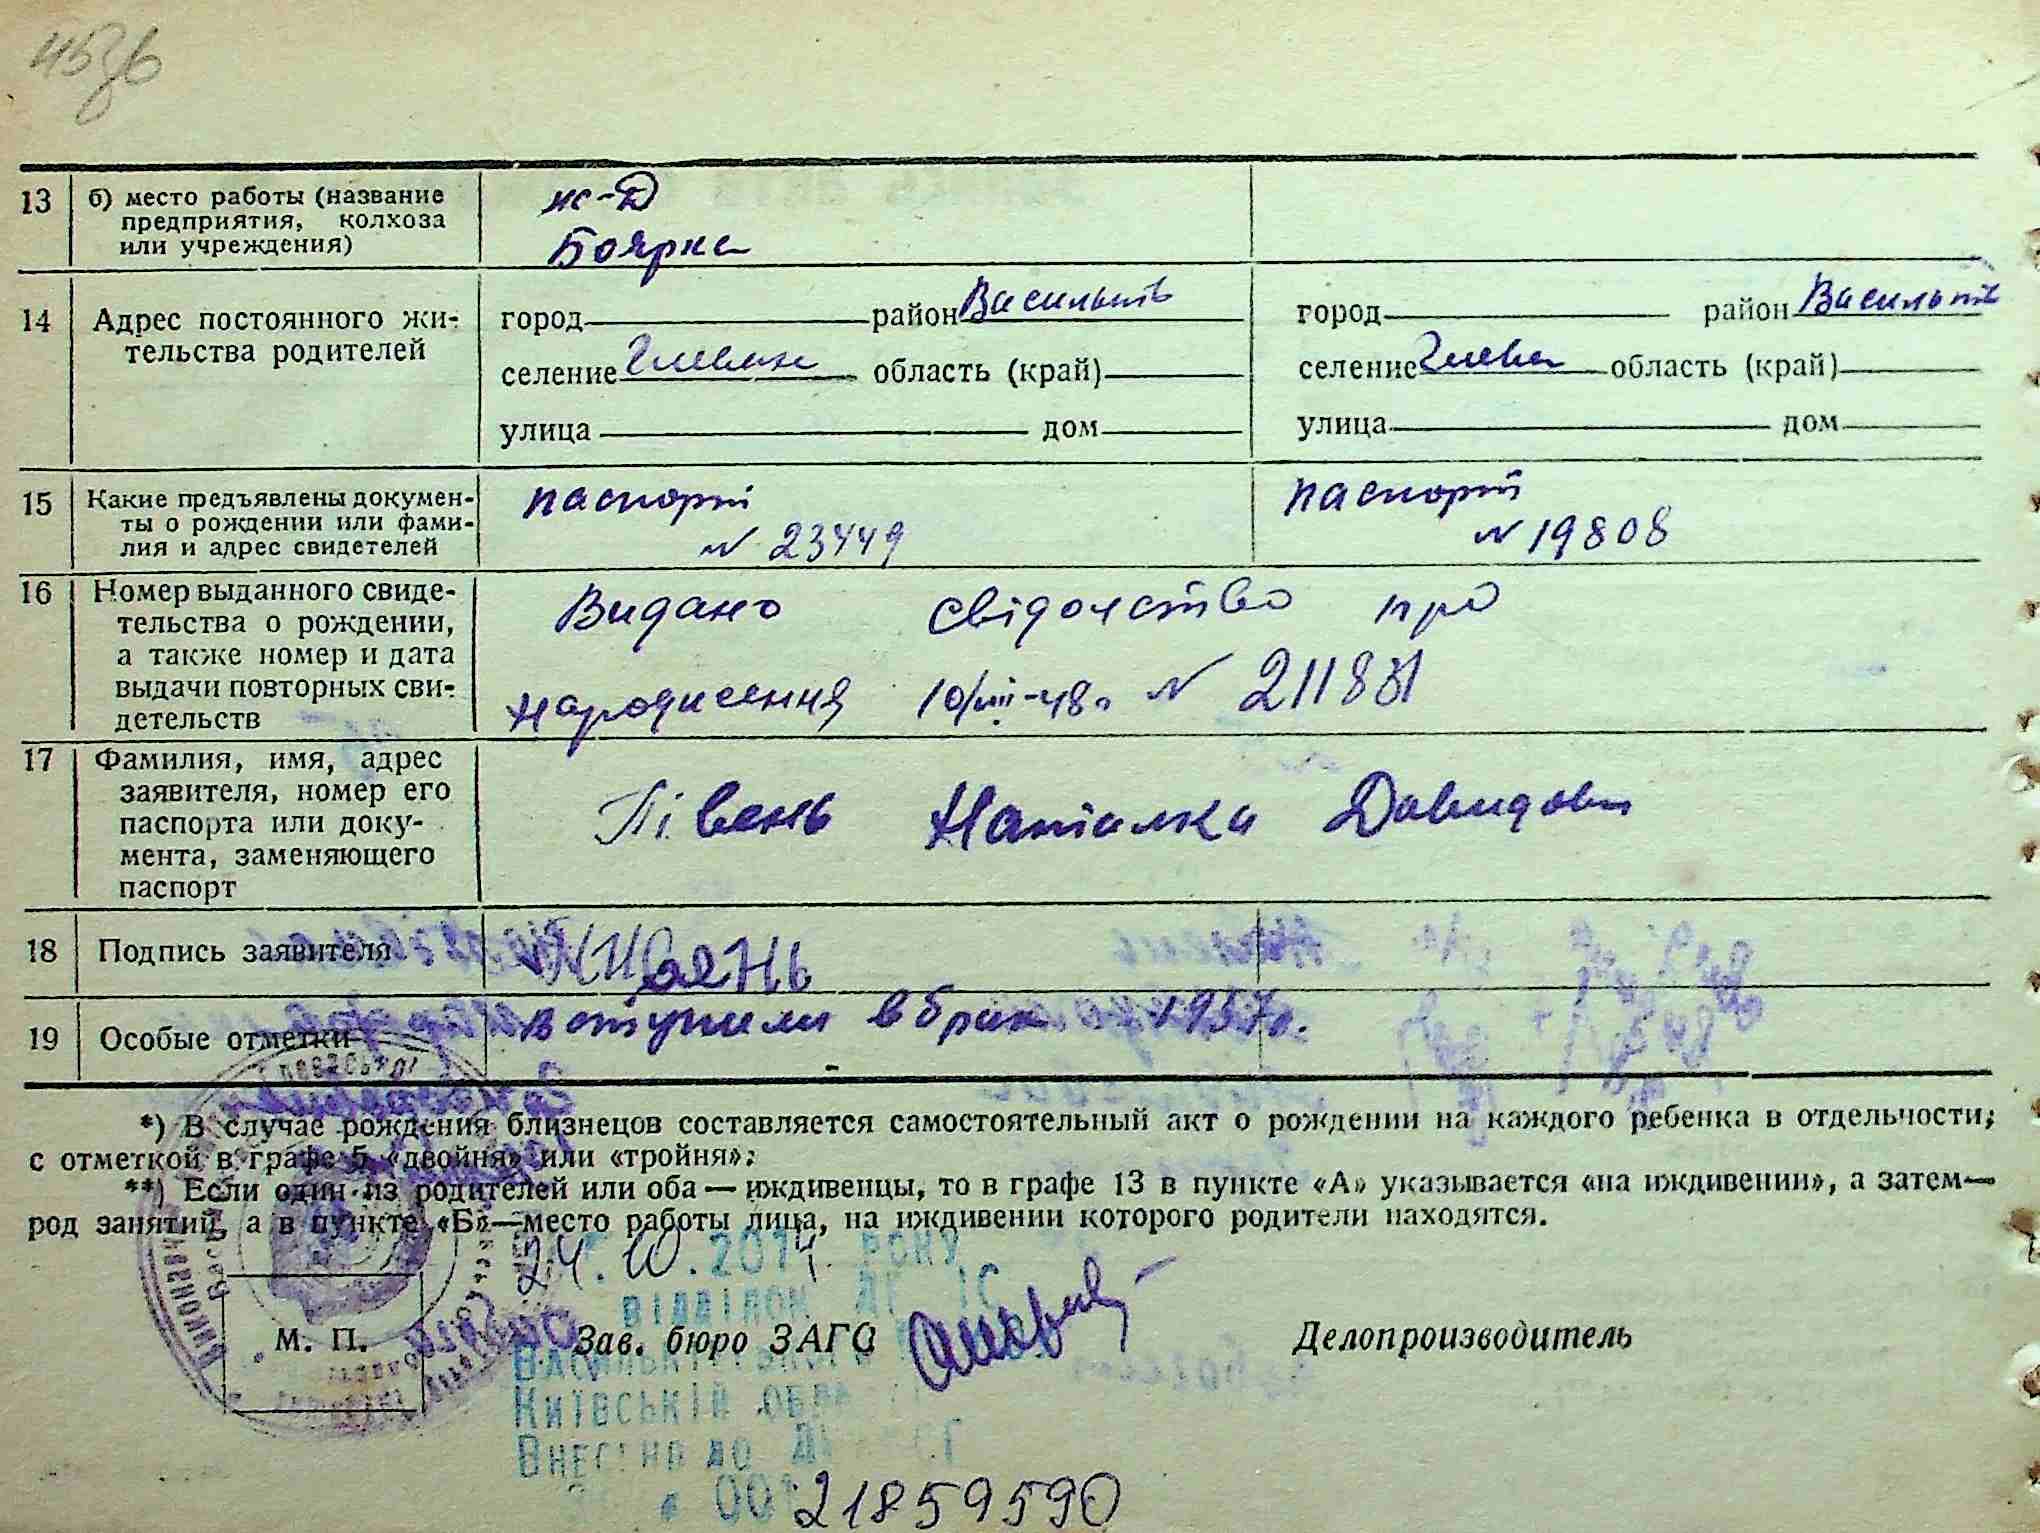 13 б) место работы (название
предприятия, колхоза
или учреждения)
Боярка
14 Адрес постоянного жи-
тельства родителей
город район Васильків
селение область (край)
улица дом
город район Васильків
селение область (край)
улица дом
15 Какие предъявлены докумен-
ты о рождении или фами-
лия и адрес свидетелей
паспорт
N 23449
паспорт
N 19808
16 Номер выданного свиде-
тельства о рождении,
а также номер и дата
выдачи повторных сви-
детельств
Видано свідоцтво про
народження 10/VIII-48 N 211831
17 Фамилия, имя, адрес
заявителя, номер его
паспорта или доку-
мента, заменяющего
паспорт
Півень Наталка Давидовн
18 Подпись заявителя
19 Особые отметки
вступили в брак 1937г.
*) В случае рождения близнецов составляется самостоятельный акт о рождении на каждого ребенка в отдельности;
с отметкой в графе 5 «двойня» или «тройня»;
**) Если один из родителей или оба — иждивенцы, то в графе 13 в пункте «А» указывается «на иждивении», а затем—
род занятий, а в пункте «Б»—место работы лица, на иждивении которого родители находятся.
24.10.2014. РОКУ
ВІДДІЛОК
М. П.
Зав. бюро ЗАГС
Делопроизводитель
КИЇВСЬКІЙ ОБЛ
ВНЕСЕНО ДО
00121859590